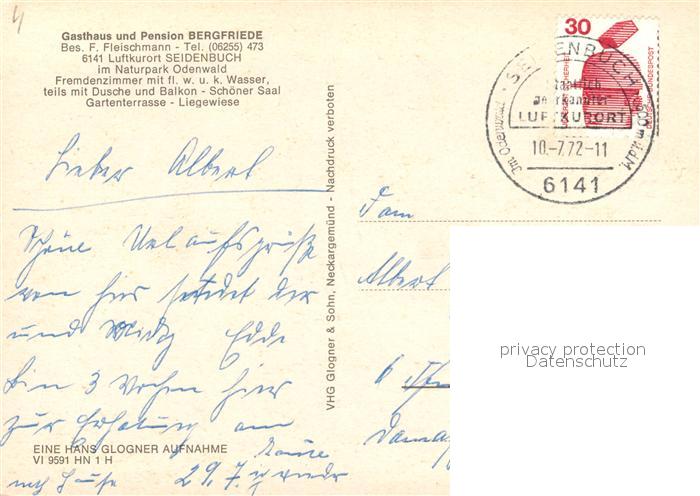 Gasthaus und Pension BERGFRIEDE
Bes. F. Fleischmann - Tel. (06255) 473
6141 Luftkurort SEIDENBUCH
im Naturpark Odenwald
Fremdenzimmer mit fl. w. u. k. Wasser,
teils mit Dusche und Balkon - Schöner Saal
Gartenterrasse - Liegewiese
Lieber Albert
Schöne Urlaubsgrüße
von hier sendet dir
und
bin 3 Wochen hier
zur Erholung am
29.7. wieder
nach Hause
EINE HANS GLOGNER AUFNAHME
VI 9591 HN 1 H
VHG Glogner & Sohn, Neckargemünd - Nachdruck verboten
30
DEUTSCHE BUNDESPOST
SEIDENBUCH
staatlich
anerkannter
LUFTKURORT
10.-7.72-11
6141
Im Odenwald
Fam
Albert
6
privacy protection
Datenschutz